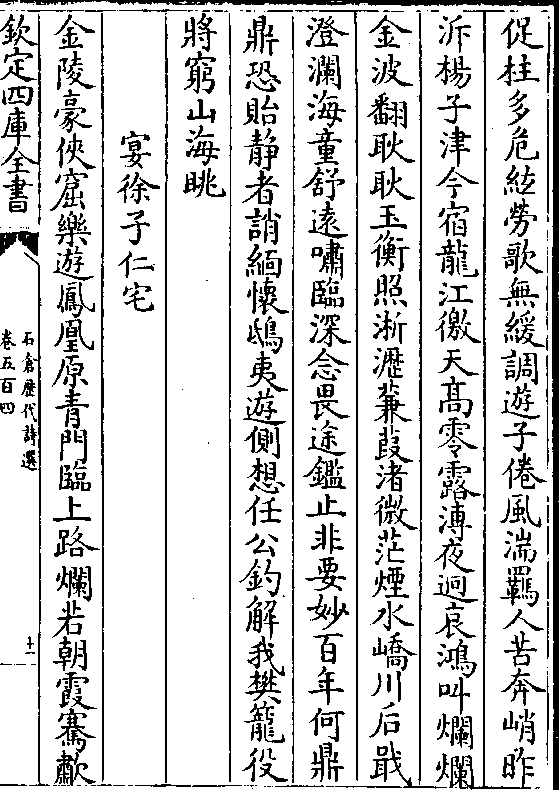 促柱多危絃勞歌無緩調遊子倦風湍羈人苦奔峭昨
泝楊子津今宿龍江徼天髙零露溥夜迥哀鴻呌爛爛
金波翻耿耿玉衡照淅瀝蒹葭渚微茫煙水嶠川后戢
澄瀾海童舒遠嘯臨深念畏途鑑止非要妙百年何鼎
鼎恐貽静者誚緬懷鴟夷遊側想任公釣解我樊籠役
將窮山海眺
宴徐子仁宅
金陵豪俠窟樂遊鳳凰原青門臨上路爛若朝霞騫歗
欽定四庫全書
石倉歴代詩選
卷五百四
十一